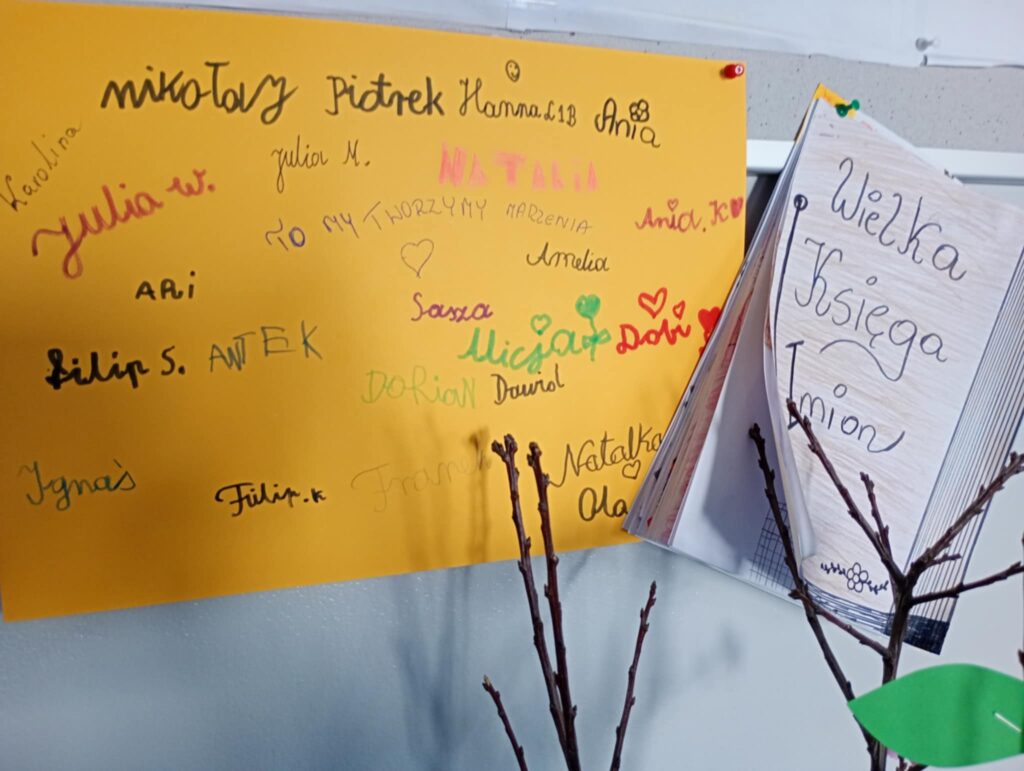 mikołaj Piotrek Hanna Ł 1B Ania
Karolina
Julia M.
NATALIA
Julia W.
TO MY TWORZYMY MARZENIA
Ania.K
Amelia
ARi
Sasza
Alicja
Dobi
Filip S.
ANTEK
DORiaN
Dawid
Ignaś
Filip.k
Franek
Natalka
Ola
Wielka
Księga
Imion